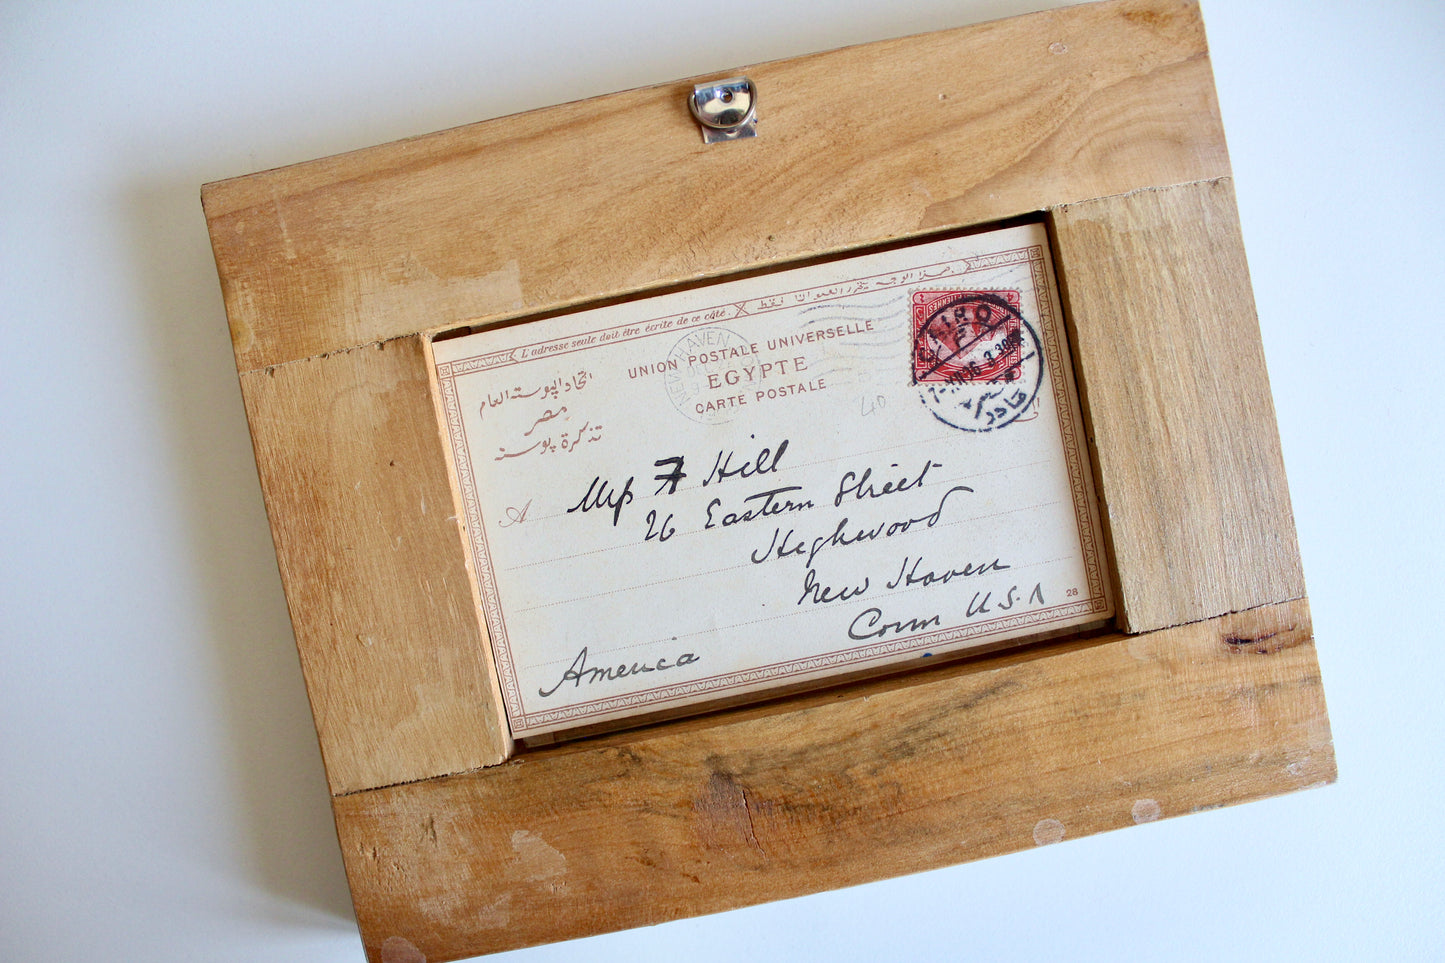 L'adresse seule doit être écrite de ce côté. هذا الوجه يتحرر العنوان فقط
UNION POSTALE UNIVERSELLE
EGYPTE
CARTE POSTALE
اتحاد البوسته العام
مصر
تذكرة بوسته
NEW HAVEN
CAIRO
40
A Miss F Hill
26 Eastern Street
Highwood
New Haven
Conn U.S.A
America
28